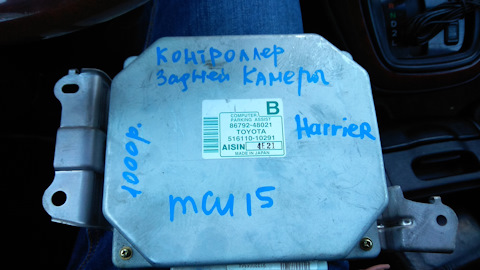 КОНТРОЛЛЕР
Задней КАМЕРЫ
B
COMPUTER
PARKING ASSIST
86792-48021
TOYOTA
516110-10291
AISIN 4E21
MADE IN JAPAN
HarrieR
1000р.
mcu 15